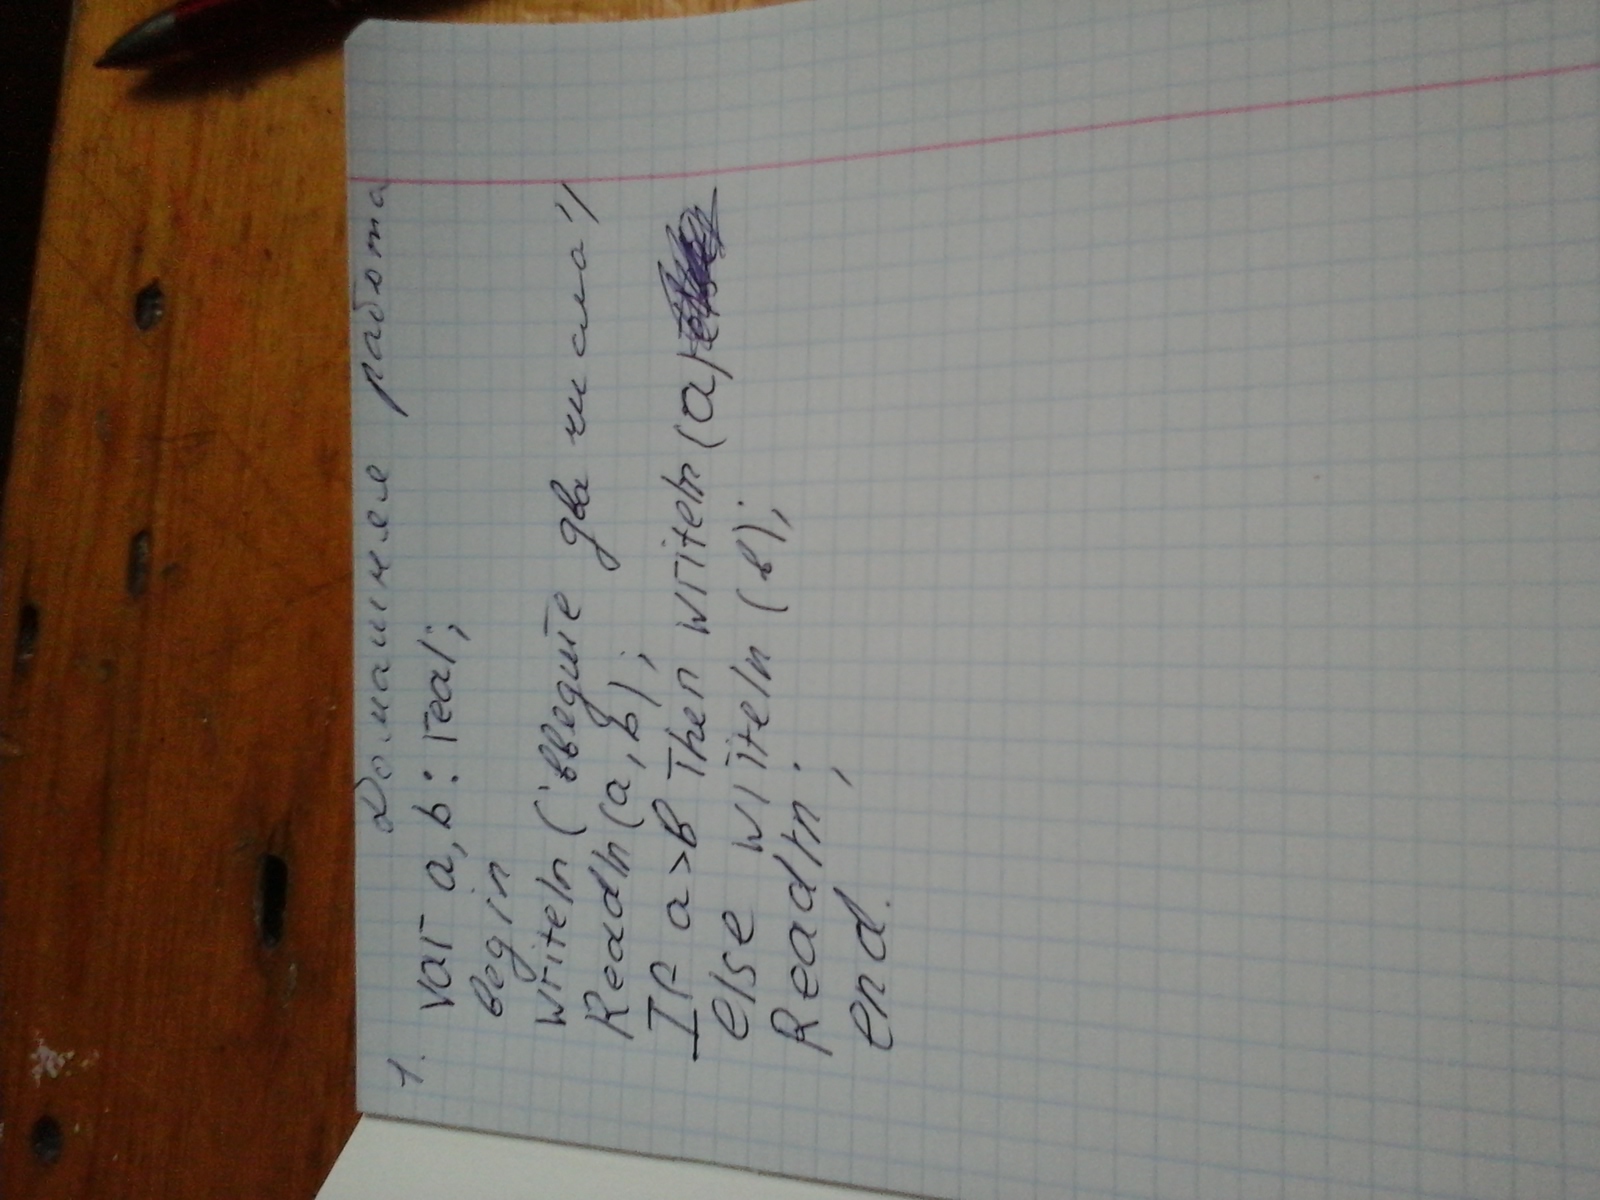 Домашняя работа
1. var a, b: real;
begin
writeln ('введите два числа')
Readln (a, b);
If a>b Then writeln (a)
else writeln (b);
Readln;
end.